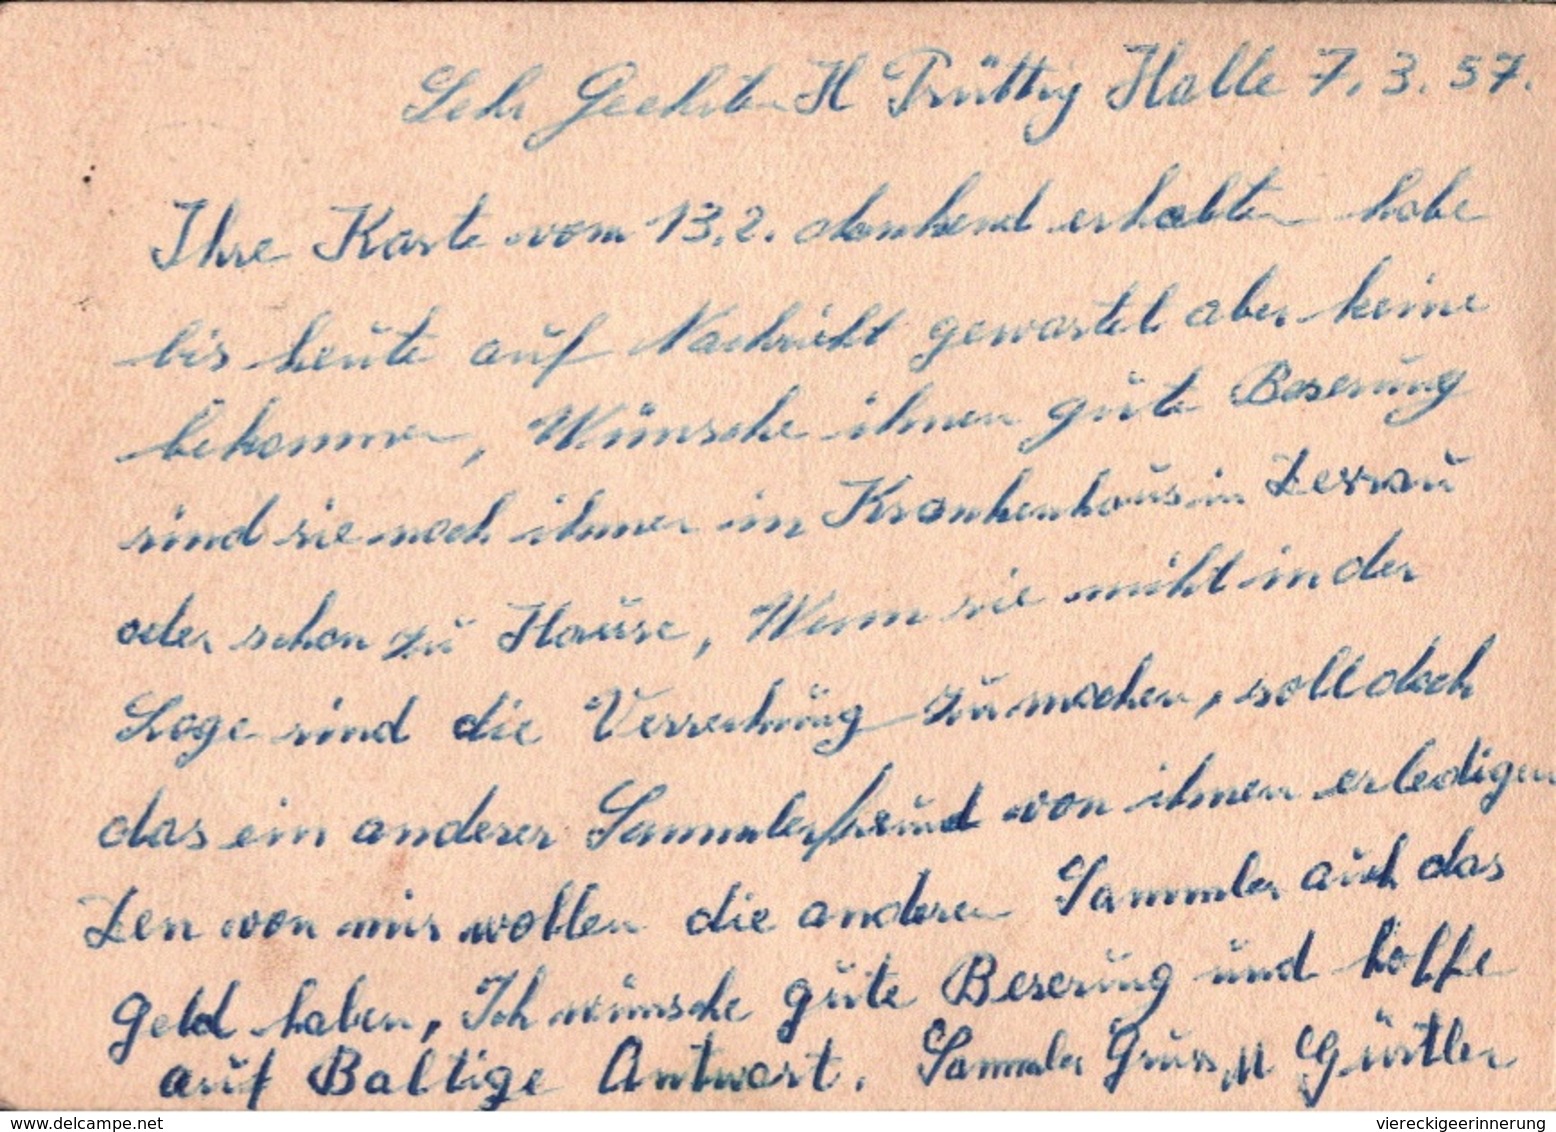 Sehr Geehrten H Prüttig Halle 7.3.57.
Ihre Karte vom 13.2. dankend erhalten habe
bis heute auf Nachricht gewartet aber keine
bekommen, Wünsche ihnen gute Beserung
sind sie noch ihmer im Krankenhaus in
oder schon zu Hause, Wenn sie nicht in der
Lage sind die Verrechnung zu machen, soll doch
das ein anderer Sammlerfreund von ihnen erledigen
Den von mir wollen die anderen Sammler auch das
Geld haben, Ich wünsche gute Beserung und hoffe
auf Baltige Antwort. Sammler Gruss M Gürtler
www.delcampe.net
viereckigeerinnerung